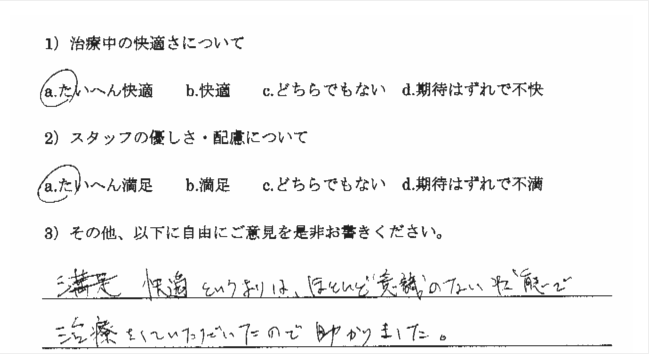 1) 治療中の快適さについて
a.たいへん快適 b.快適 c.どちらでもない d.期待はずれで不快
2) スタッフの優しさ・配慮について
a.たいへん満足 b.満足 c.どちらでもない d.期待はずれで不満
3) その他、以下に自由にご意見を是非お書きください。
満足 快適 というよりは、ほとんど意識のない状態で
治療をしていただいたので助かりました。